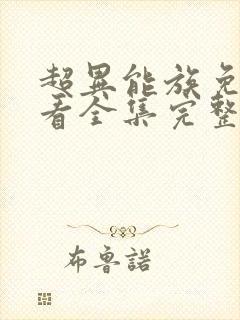 超異能族免
看全集完整
布魯諾